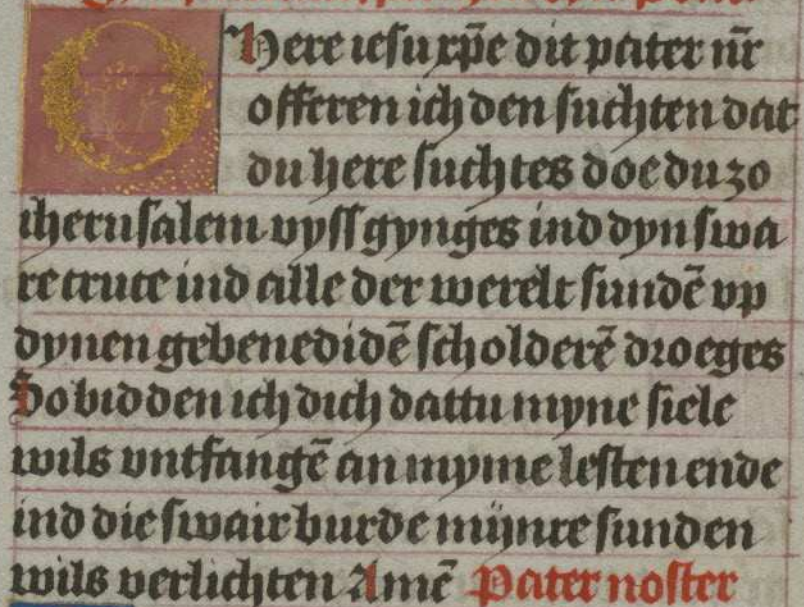 O Here iesu xp̄e dit pater nr̄
offeren ich den suchten dat
du here suchtes doe du zo
iherusalem vyss gynges ind dyn swa
re cruce ind alle der werelt sundē vp
dynen gebenedidē scholderē droeges
So bidden ich dich dattu myne siele
wils vntfangē an myme lesten ende
ind die swair burde mijnre sunden
wils verlichten Amē Pater noster